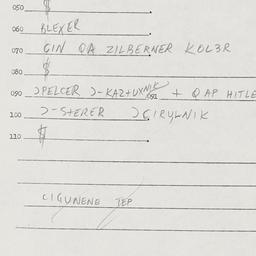 050 $
060 BLEXER
070 GIN QA ZILBERNER KOL3R
080 $
090 SPELCER S-KAZTUXNIK 091 + Q AP HITLE
100 S-STERER SCIRYLNIK
110 $
CIGUNENE TEP